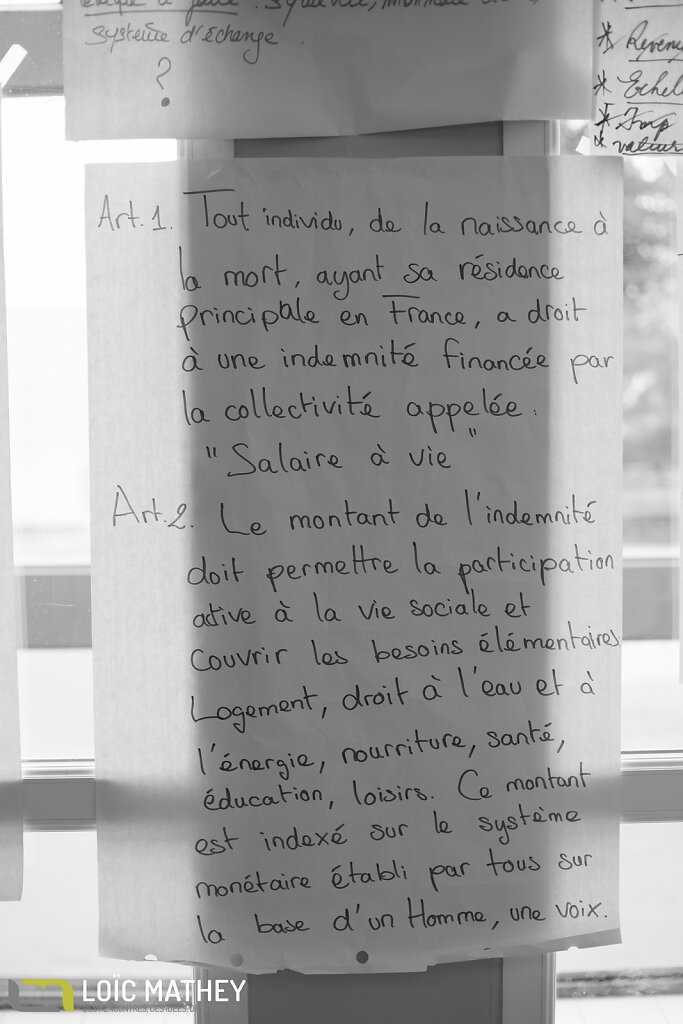 système d'échange
?
* Reven
* Echel
* Imp
*
Art.1. Tout individu, de la naissance à
la mort, ayant sa résidence
principale en France, a droit
à une indemnité financée par
la collectivité appelée :
"Salaire à vie"
Art.2. Le montant de l'indemnité
doit permettre la participation
active à la vie sociale et
couvrir les besoins élémentaires
Logement, droit à l'eau et à
l'énergie, nourriture, santé,
éducation, loisirs. Ce montant
est indexé sur le système
monétaire établi par tous sur
la base d'un Homme, une voix.
LOÏC MATHEY